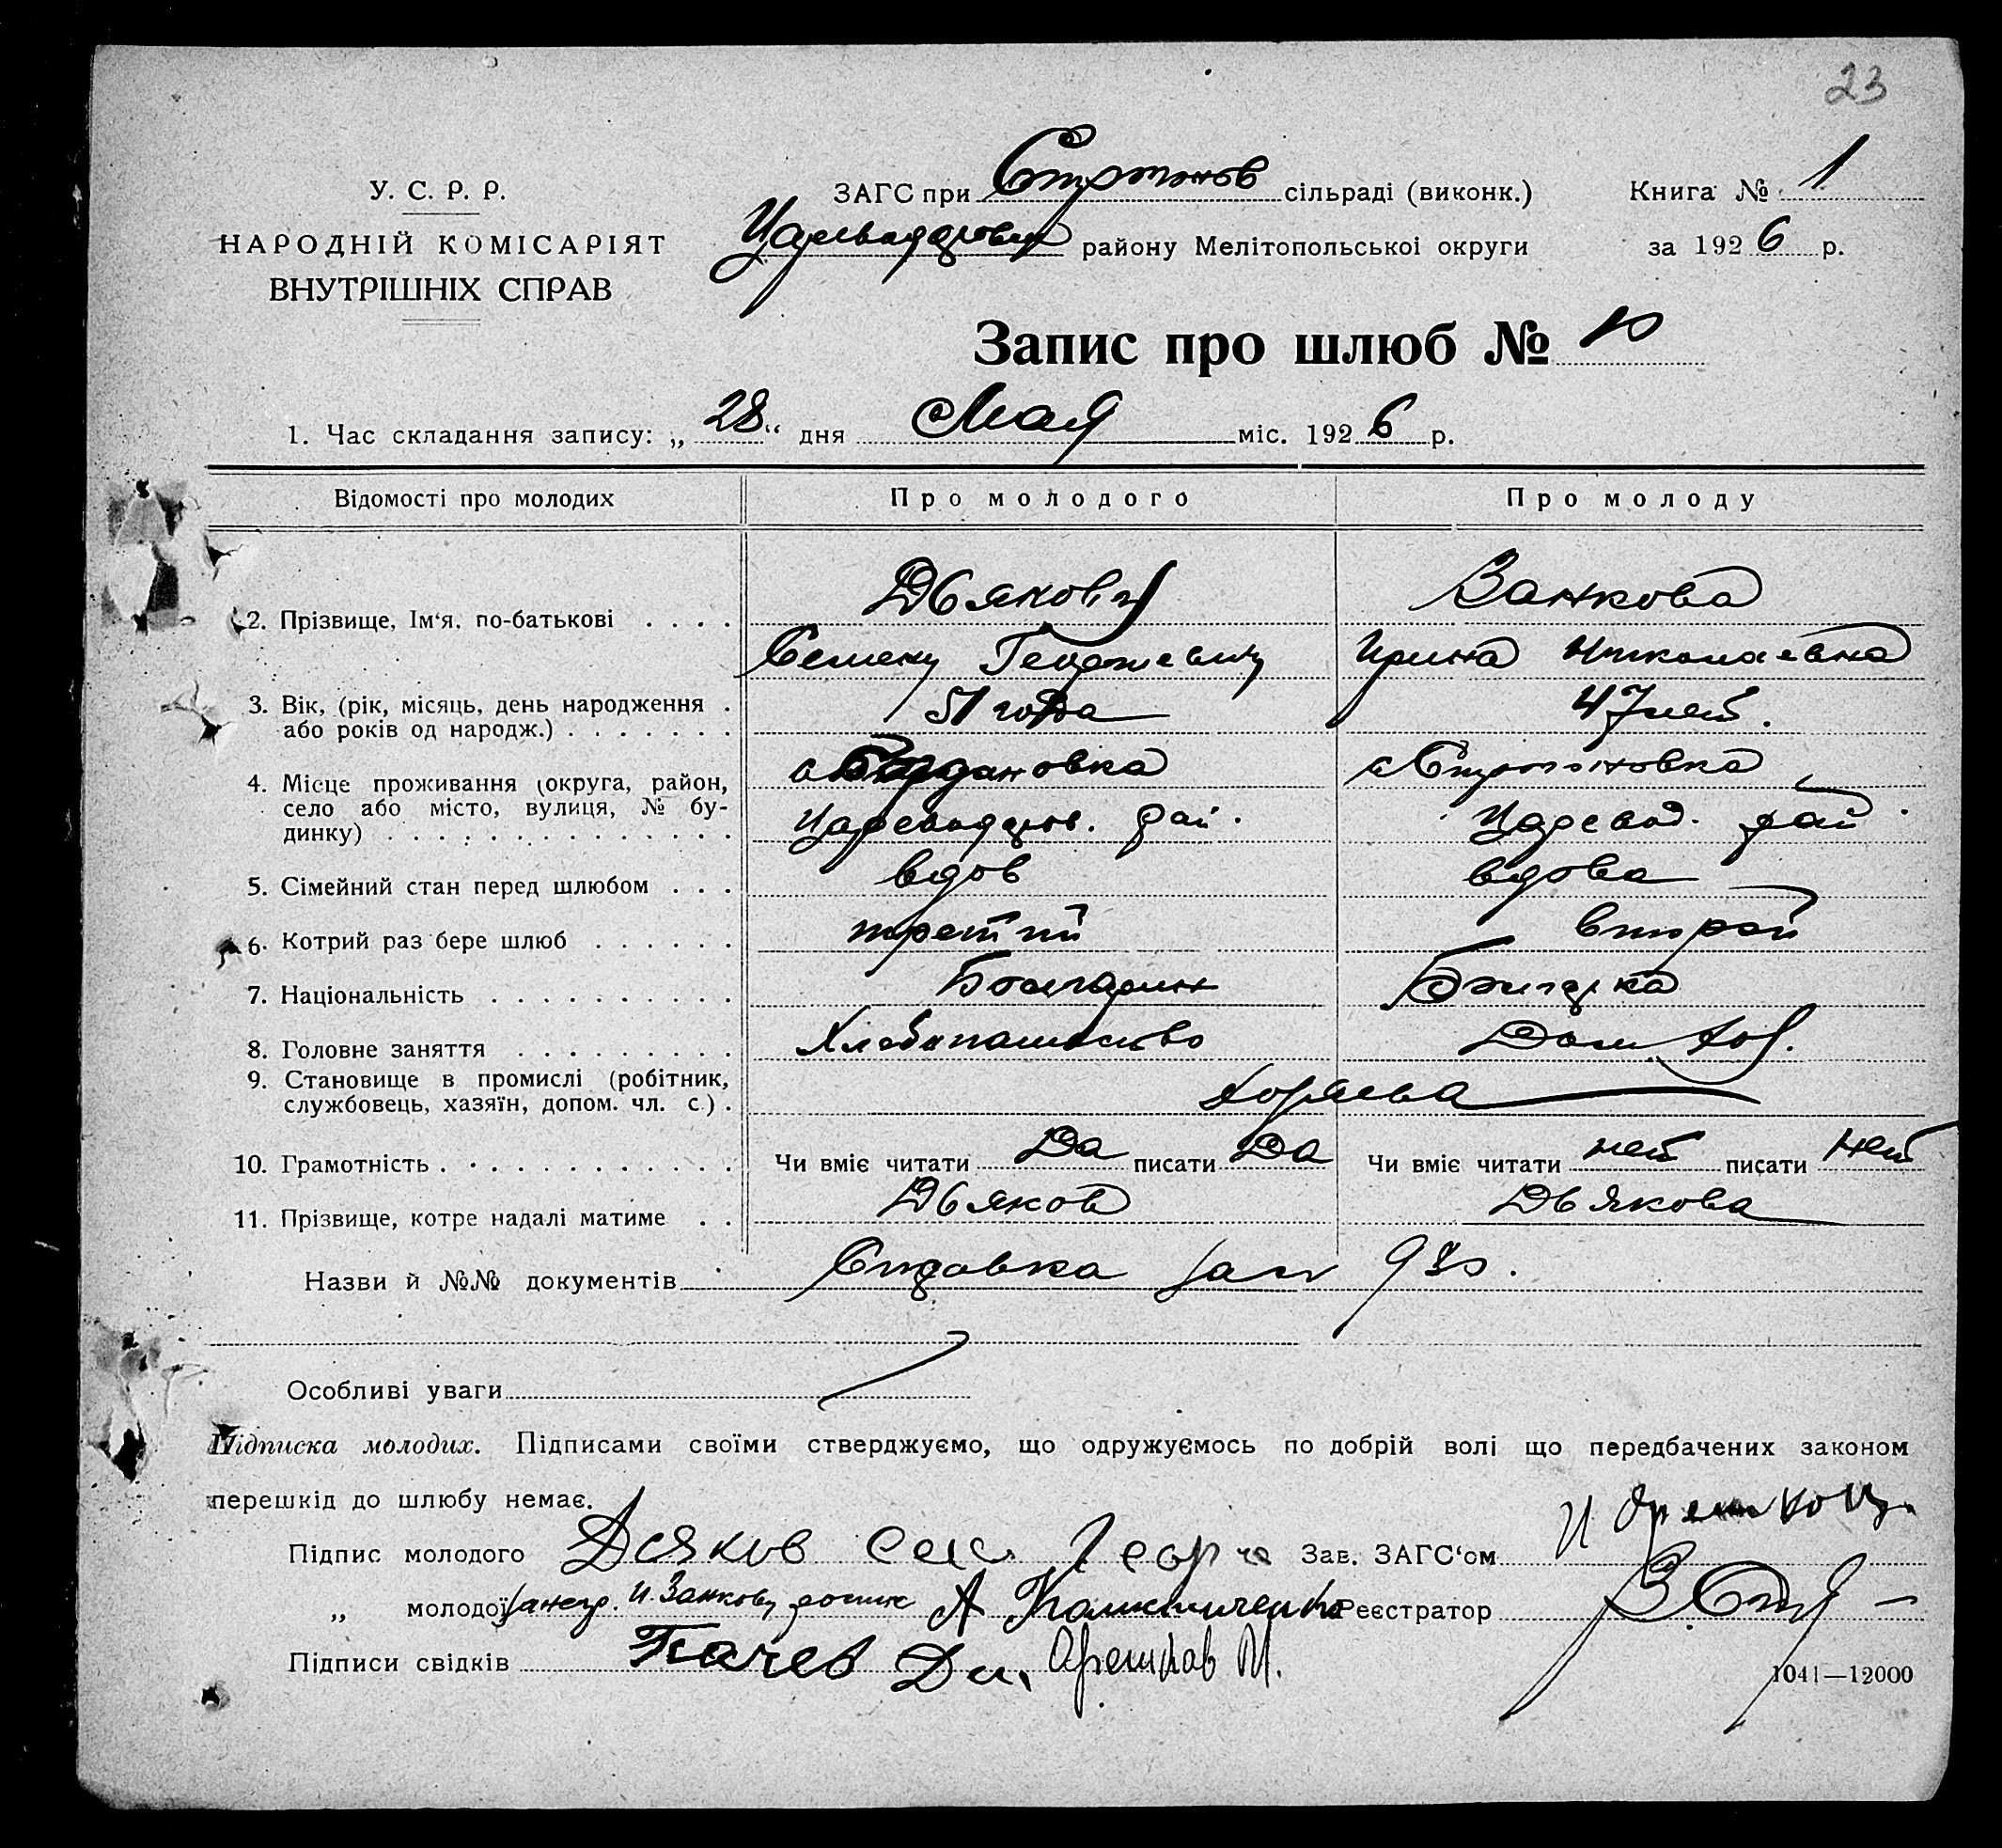 23
У. С. Р. Р.
НАРОДНІЙ КОМІСАРІЯТ
ВНУТРІШНІХ СПРАВ
ЗАГС при Строганов сільраді (виконк.)
Цареводаров району Мелітопольської округи
Книга № 1
за 1926 р.
Запис про шлюб № 10
1. Час складання запису: „28“ дня Мая міс. 1926 р.
Відомості про молодих Про молодого Про молоду
2. Прізвище, Ім'я, по-батькові Дьякову Занкова
Семену Георгиевичу Ирина Николаевна
3. Вік, (рік, місяць, день народження 51 года 47 лет.
або років од народж.)
4. Місце проживання (округа, район, дановка с Строгоновка
село або місто, вулиця, № бу- Цареводаров. рай. Царевод. рай
динку)
5. Сімейний стан перед шлюбом вдов вдова
6. Котрий раз бере шлюб третий второй
7. Національність Болгарин Болгарка
8. Головне заняття Хлебопашество Дом. хоз.
9. Становище в промислі (робітник,
службовець, хазяїн, допом. чл. с.)
10. Грамотність Чи вміє читати Да писати Да Чи вміє читати нет писати нет
11. Прізвище, котре надалі матиме Дьяков Дьякова
Назви й №№ документів Справка за №
Особливі уваги
Підписка молодих. Підписами своїми стверджуємо, що одружуємось по добрій волі що передбачених законом
перешкід до шлюбу немає.
Підпис молодого Дьяков Сем Георги Зав. ЗАГС'ом
„ молодої за негр. И. Занкову роспис А Реєстратор
Підписи свідків Ткачев Дм. Орешков М.
1041—12000